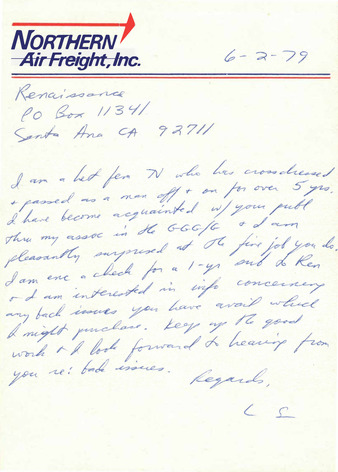 NORTHERN
Air Freight, Inc.
6-2-79
Renaissance
PO Box 11341
Santa Ana CA 92711
I am a het fem TV who has crossdressed
& passed as a man off & on for over 5 yrs.
I have become acquainted w/ your publ
thru my assoc in the GGG/G & I am
pleasantly surprised at the fine job you do.
I am enc a check for a 1-yr sub to Ren
& I am interested in info concerning
any back issues you have avail which
I might purchase. Keep up the good
work & I look forward to hearing from
you re: back issues.
Regards,
L S